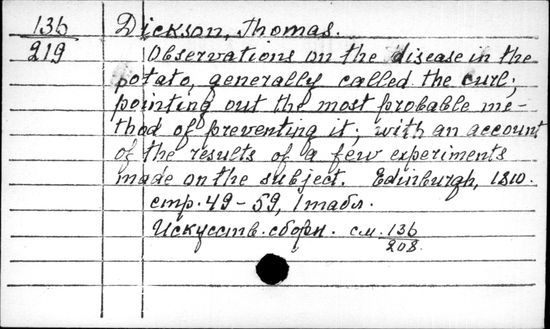 136 Dickson, Thomas.
219 Observations on the disease in the
potato, generally called the curl;
pointing out the most probable me-
thod of preventing it; with an account
of the results of a few experiments
made on the subject. Edinburgh, 1810.
стр. 49-59, 1 табл.
Искусств. сборн. см. 136
208.